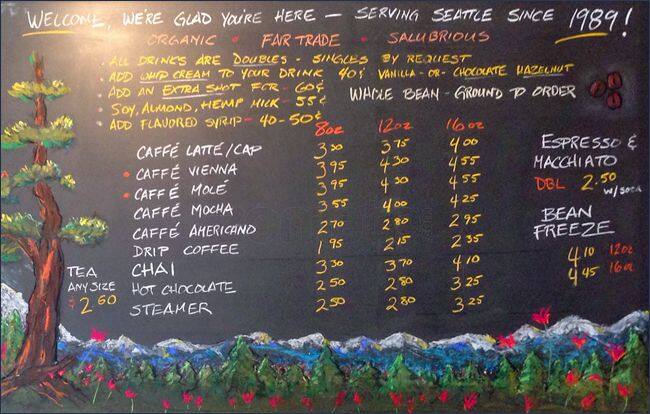 WELCOME, WE'RE GLAD YOU'RE HERE — SERVING SEATTLE SINCE 1989!
ORGANIC • FAIR TRADE • SALUBRIOUS
• ALL DRINKS ARE DOUBLES - SINGLES BY REQUEST
• ADD WHIP CREAM TO YOUR DRINK 40¢ VANILLA -OR- CHOCOLATE HAZELNUT
• ADD AN EXTRA SHOT FOR - 60¢ WHOLE BEAN - GROUND TO ORDER
• SOY, ALMOND, HEMP MILK - 55¢
• ADD FLAVORED SYRIP - 40-50¢
8oz 12oz 16oz
CAFFÉ LATTE/CAP 3.30 3.75 4.00
• CAFFÉ VIENNA 3.95 4.30 4.55
• CAFFÉ MOLÉ 3.95 4.30 4.55
CAFFÉ MOCHA 3.55 4.00 4.25
CAFFÉ AMERICANO 2.70 2.80 2.95
DRIP COFFEE 1.95 2.15 2.35
CHAI 3.30 3.70 4.10
HOT CHOCOLATE 2.50 2.80 3.25
STEAMER 2.50 2.80 3.25
TEA
ANY SIZE
$2.60
ESPRESSO &
MACCHIATO
DBL 2.50
w/SODA
BEAN
FREEZE
4.10 12oz
4.45 16oz